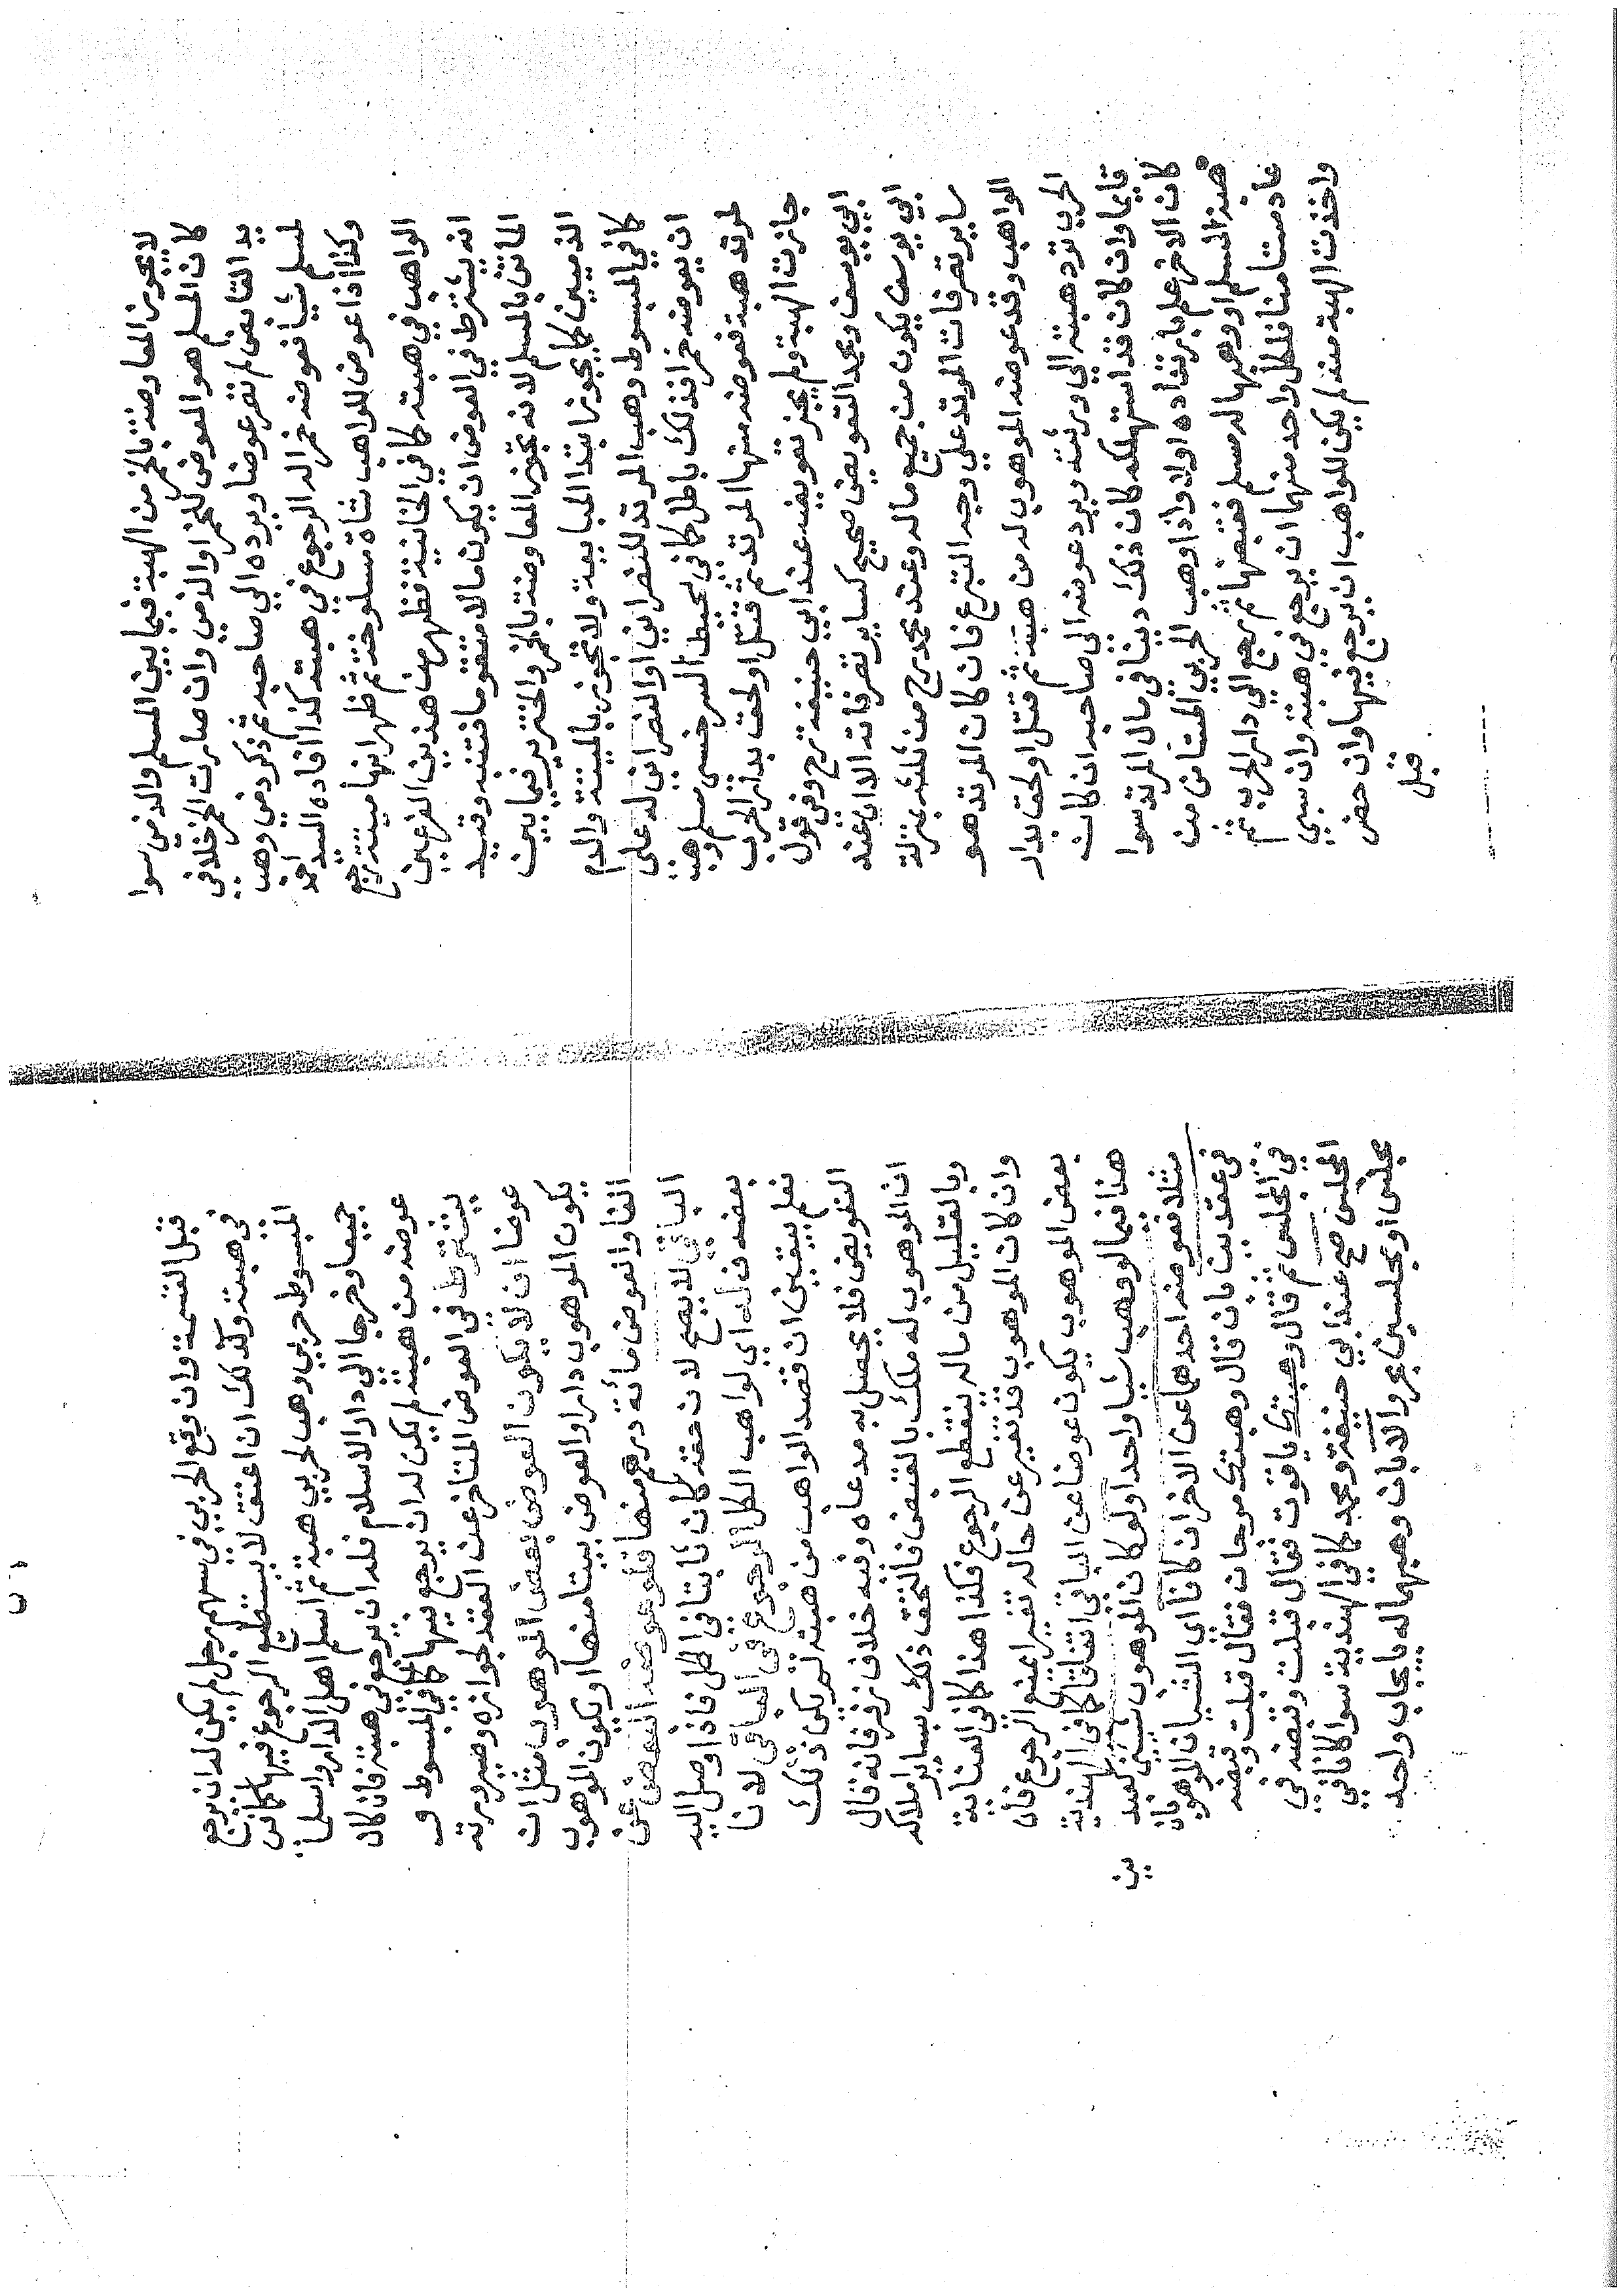 لا يجوز المعاوضة بالخمر من الهبة فيما بين المسلم والذمي سوا
كان المسلم هو المعوض للخمر او الذمي وان صارت الخمر خلا في
يد القابض لم تصر عوضا ويرده الي صاحبه ثم ذكر ذمي وهب
لمسلم شيا فعوضه خمرا له الرجوع في هبته كذا افاده السيد احمد
وكذا اذا عوض للواهب شاة مسلوخة ثم ظهر انها ميتة رجع
الواهب في هبته كما في الخانية فظهر من هذين الفرعين
انه يشترط في العوض ان يكون مالا متقوما فتنبه وقيد
الماتن بالمسلم لانه تجوز المعاوضة بالخمر والخنزير فيما بين
الذميين كما يجوز ابتدا المبايعة ولا تجوز بالميتة والدم
كما في المبسوط وهب المرتد للنصراني او النصراني له على
ان يعوضه خمرا فذلك باطل كما في محيط السرخسي مسلم وهب
لمرتد هبة فعوضه منها المرتد ثم قتل او لحق بدار الحرب
جازت الهبة ولم يجز تعويضه عند ابي حنيفة رح وفي قول
ابي يوسف ومحمد التعويض صحيح كساير تصرفاته الا ان عند
ابي يوسف يكون من جميع ماله وعند محمد رح من ثلثه بمنزلة
ساير تصرفات المرتد علي وجه التبرع فان كان المرتد هو
الواهب وقد عوضه الموهوب له من هبته ثم قتل او لحق بدار
الحرب ترد هبته الي ورثته ويرد عوضه الى صاحبه ان كان
قايما وان كان قد استهلكه كان ذلك دينا في مال المرتد سوا
كان الاخر علم بارتداده اولا واذا وهب الحربي المستامن من
هبة المسلم او وهبها له مسلم فقبضها ثم رجع الي دار الحرب ثم
عاد مستامنا فلكل واحد منهما ان يرجع في هبته وان سبي
واخذت الهبة منه لم يكن للواهب ان يرجع فيها وان حضر
قبل
قبل القسمة وان وقع الحربي في سهم رجل لم يكن له ان يرجع
في هبته وكذلك ان اعتق لا يستطيع الرجوع فيها كما في
المبسوط حربي وهب لحربي هبة ثم اسلم اهل الدار واسلما
جميعا وخرجا الي دار الاسلام فله ان يرجع في هبته فان كان
عوضه من هبته لم يكن له ان يرجع فيها كما في المبسوط و
يشترط في العوض المتاخر عن العقد لجوازه وصيرورته
عوضا ان لا يكون العوض بعض الموهوب مثل ان
يكون الموهوب دارا والعوض بيتا منها او يكون الموهوب
الفا والعوض مائة درهم منها فلو عوضه البعض عن
الباقي لا يصح لان حقه كان ثابتا في الكل فاذا وصل اليه
بعضه فله اي لواهب الكل الرجوع في الباقي لانا
نعلم بيقين ان قصد الواهب من هبته لم يكن ذلك
التعويض فلا يحصل به مدعاه وفيه خلاف زفر فانه قال
ان الموهوب له ملك بالقبض فالتحق ذلك بساير املاكه
وبالقليل من ماله ينقطع الرجوع فكذا هذا كما في العناية
وان كان الموهوب قد تغير عن حاله تغيرا يمنع الرجوع فان
بعض الموهوب يكون عوضا عن الباقي اتفاقا كما في الهندية
هذا فيما لو وهب شيا واحدا ولو كان الموهوب شيئين كعبد
ين
مثلا فعوضه احدهما عن الاخر ان كانا اي الشيان الموهوبان
في عقدين بان قال وهبتك مرجان فقال قبلت وقبضه
في المجلس ثم قال وهبتك ياقوت فقال قبلت وقبضه في
المجلس صح عند ابي حنيفة ومحمد كما في الهندية سوا كانا في
مجلس او مجلسين بحر والا بان وهبهما له بايجاب واحد